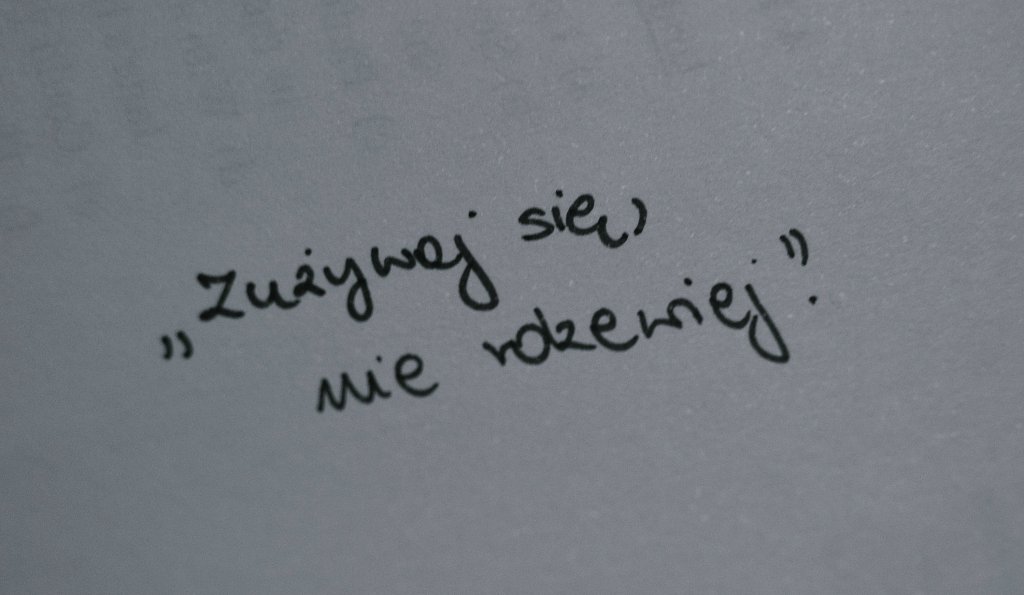 „Zużywaj się,
nie rdzewiej”.